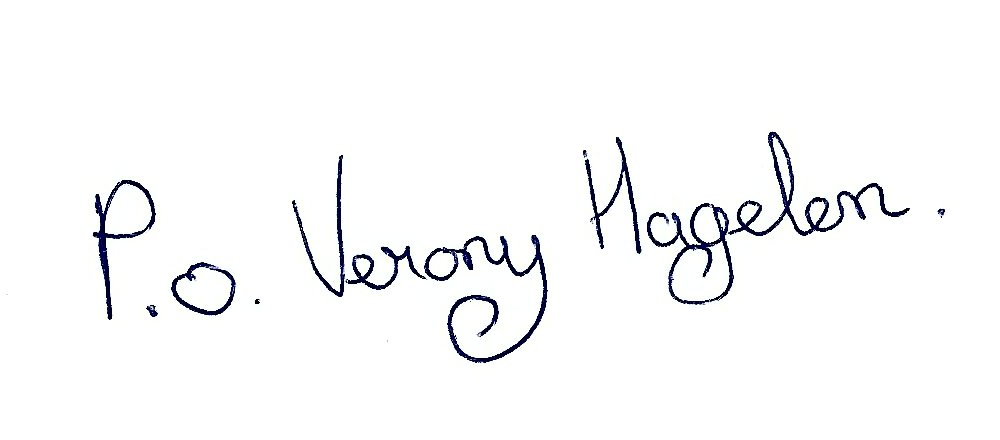 P.o. Verony Hagelen.